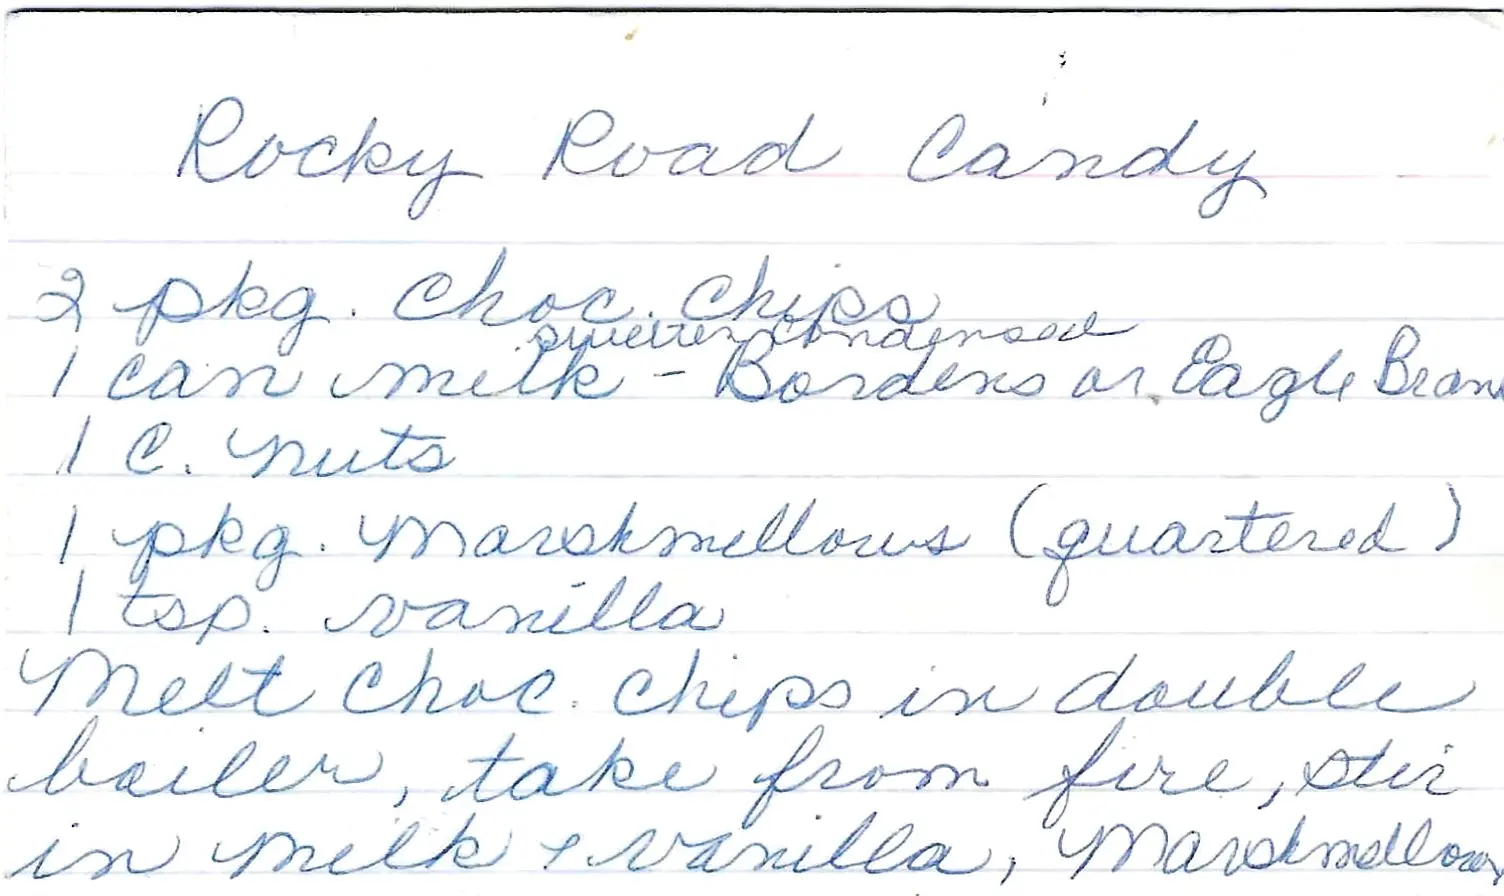 Rocky Road Candy
2 pkg. Choc. Chips
sweeten condensed
1 can milk - Bordens or Eagle Bran
1 C. nuts
1 pkg. Marshmellows (quartered)
1 tsp. vanilla
Melt Choc. Chips in double
boiler, take from fire, stir
in milk + vanilla, Marshmellows